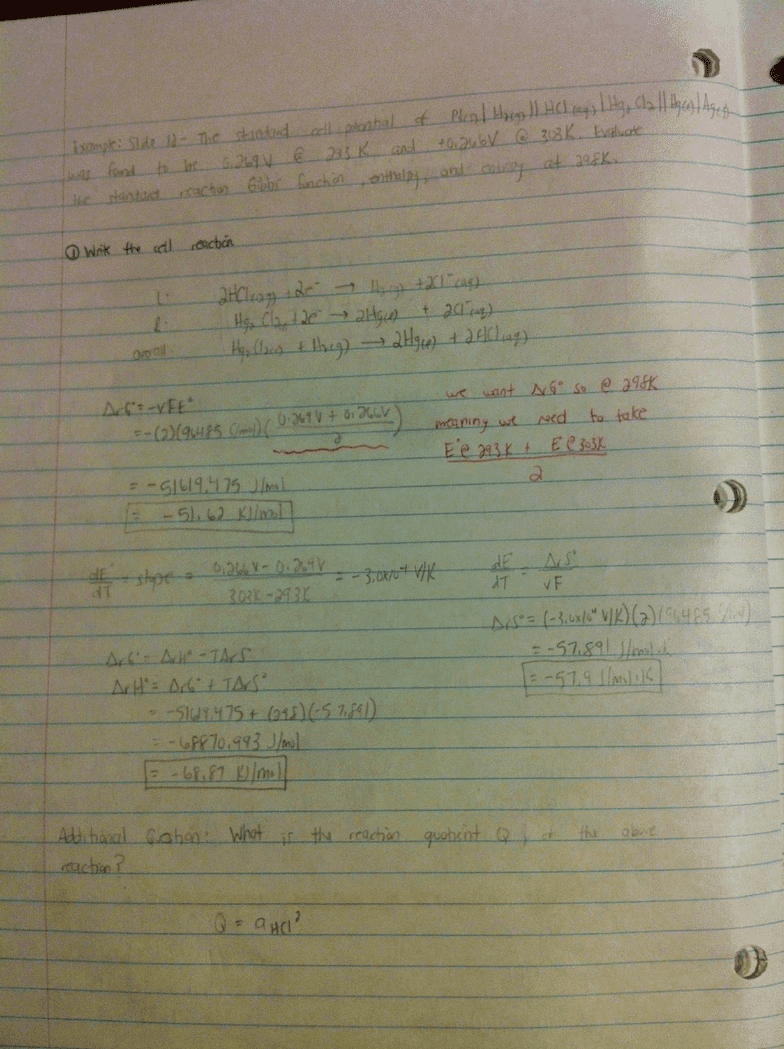 Example: Slide 12 - The standard cell potential of Pt(s) | H2(g) || HCl(aq) | Hg2Cl2 || Hg(l) | Ag(s)
was found to be 0.269V @ 293K and +0.266V @ 303K. Evaluate
the standard reaction Gibbs function, enthalpy, and entropy at 298K.
① Write the cell reaction
L: 2HCl(aq) + 2e⁻ → H2(g) + 2Cl⁻(aq)
R: Hg2Cl2 + 2e⁻ → 2Hg(l) + 2Cl⁻(aq)
overall: Hg2Cl2(s) + H2(g) → 2Hg(l) + 2HCl(aq)
ΔrG° = -νFE°
= -(2)(96485 C/mol)((0.269V + 0.266V)/2)
= -51619.475 J/mol
= -51.62 KJ/mol
we want ΔrG° so @ 298K
meaning we need to take
E°@ 293K + E°@303K
2
dE°/dT = slope = (0.266V - 0.269V)/(303K - 293K) = -3.0x10⁻⁴ V/K
dE°/dT = ΔrS°/νF
ΔrS° = (-3.0x10⁻⁴ V/K)(2)(96,485 C/mol)
= -57.891 J/mol·K
= -57.9 J/mol·K
ΔrG° = ΔrH° - TΔrS°
ΔrH° = ΔrG° + TΔrS°
= -51619.475 + (298)(-57.891)
= -68870.993 J/mol
= -68.87 KJ/mol
Additional Question: What is the reaction quotient Q, of the above
reaction?
Q = aHCl²